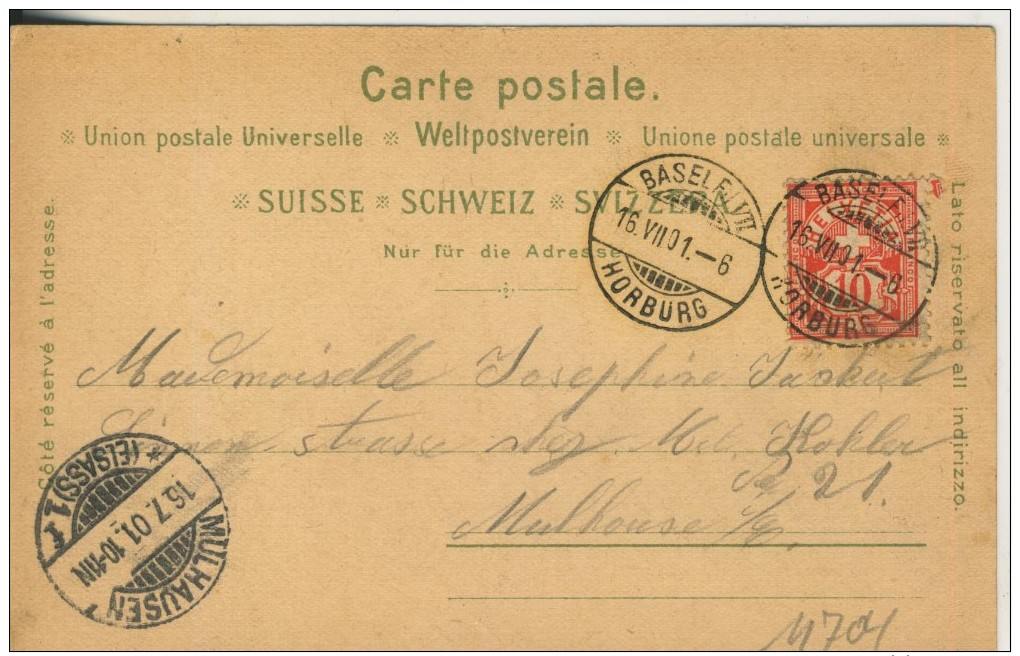 Carte postale.
※ Union postale Universelle ※ Weltpostverein ※ Unione postale universale ※
※ SUISSE ※ SCHWEIZ ※ SVIZZERA
Nur für die Adresse
Côté réservé à l'adresse.
Lato riservato all indirizzo.
BASEL F. VII
16.VII.01.–6
HORBURG
BASEL F. VII
16.VII.01.–6
HORBURG
HELVETIA
10
Mademoiselle Josephine
strasse chez Kohler
No 21.
Mulhouse
MÜLHAUSEN
16.7.01. 10-11N
* (ELSASS) 1 f
4704